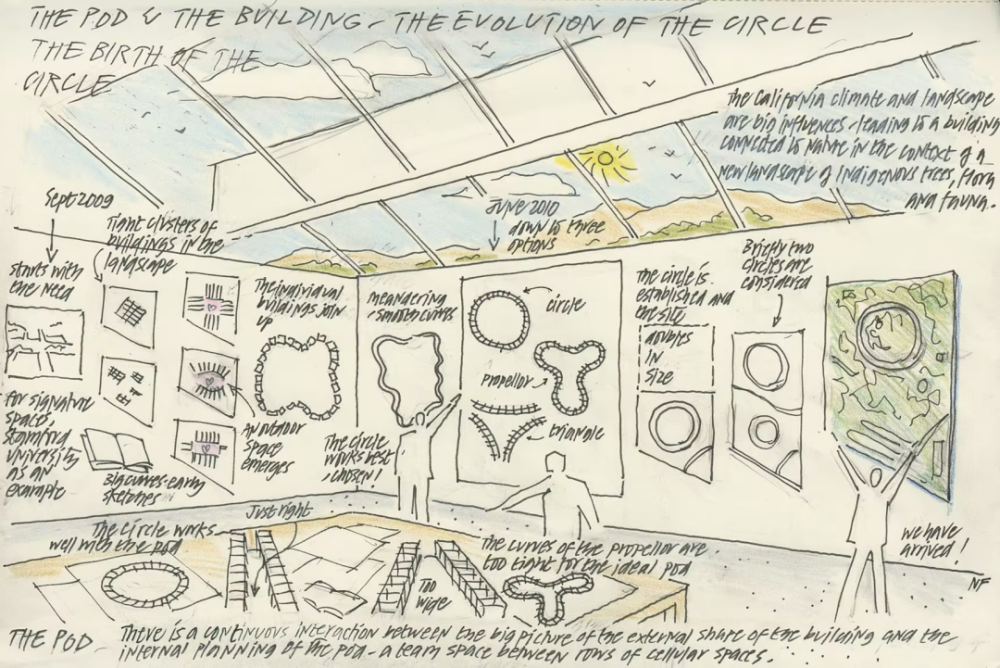 THE POD & THE BUILDING - THE EVOLUTION OF THE CIRCLE
THE BIRTH OF THE
CIRCLE
The California climate and landscape
are big influences - leading to a building
connected to nature in the context of a
new landscape of indigenous trees, flora
and fauna.
Sept 2009
Tight clusters of
buildings in the
landscape
June 2010
down to three
options
Briefly two
circles are
considered
starts with
the need
The individual
buildings join
up
meandering
- smooth curves
circle
The circle is
established and
the site
doubles
in
size
propellor
triangle
for signature
space,
Stanford
University
as an
example
Big curves - early
sketches
An outdoor
space
emerges
The circle
works best
- chosen!
Just right
The circle works
well with the pod
Too
wide
The curves of the propellor are
too tight for the ideal pod
we have
arrived!
NF
THE POD - There is a continuous interaction between the big picture of the external share of the building and the
internal planning of the pod - a team space between rows of cellular spaces.